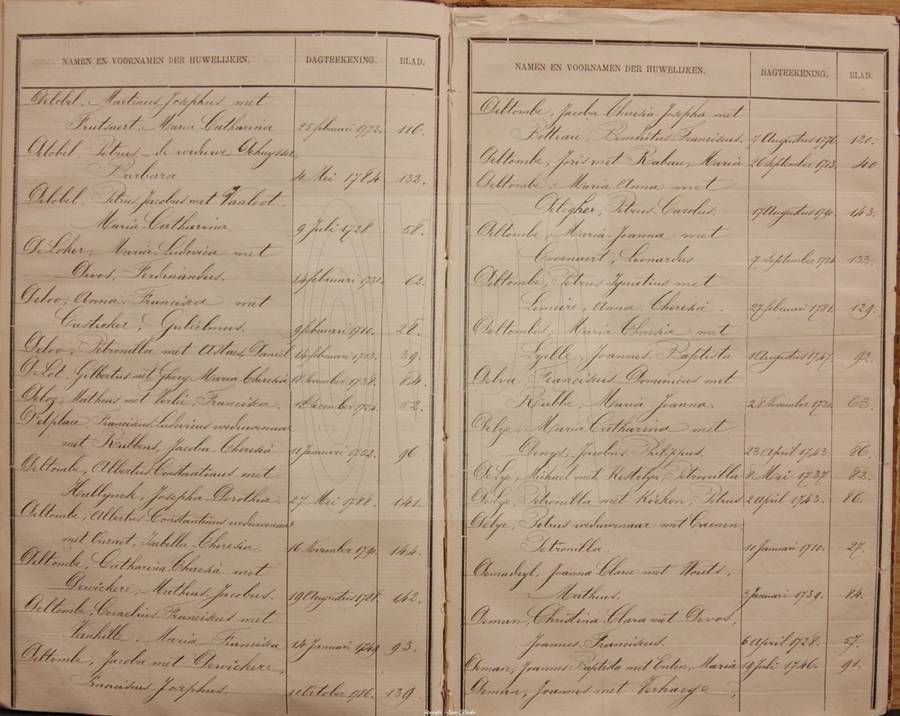 NAMEN EN VOORNAMEN DER HUWELIJKEN. DAGTEEKENING. BLAD.
Delobel, Martinus Josephus met
Frutsaert, Maria Catharina 25 februari 1772. 116.
Delobel, Petrus de weduwe
Barbara 4 Mei 1784 132.
Delobel, Petrus Jacobus met Vanloot
Maria Catharina 9 Juli 1728 58.
DeLoker, Maria Ludovica met
Devos, Ferdinandus. 24 februari 62.
Deloo, Anna Francisca met
Custicker, Gulielmus. 9 februari 1710. 28.
Deloo, Petronilla met Staes Daniel 39.
DeLot, Gilbertus met Ghory Maria Theresia 1738. 84.
Matheus met Francisca. December 1724. 52.
Delplace, Franciscus Ludovicus weduwenaar
met Rubbens, Jacoba Theresia 11 Januari 1752. 96
Deltombe, Albertus Constantinus met
Hallynck, Josepha Dorothea 27 Mei 1788. 141.
Deltombe, Albertus Constantinus weduwenaar
met Isabella Theresia. 16 November 1790. 144.
Deltombe, Catharina Theresia met
Dewickere, Matheus Jacobus. 19 Augustus 1788. 142.
Deltombe, Cornelius Franciscus met
Vanhille, Maria Francisca 14 Januari 1749 93.
Deltombe, Jacoba met Dewickere,
Franciscus Josephus. October 1786. 139.
NAMEN EN VOORNAMEN DER HUWELIJKEN. DAGTEEKENING. BLAD.
Deltombe, Jacoba Theresia Josepha met
Potteau, Benedictus Franciscus. 7 Augustus 1776. 120.
Deltombe, Joris met Rabau, Maria 26 September 1713. 40
Deltombe, Maria Anna met
Delegher, Petrus Carolus. 17 Augustus 1790. 143.
Deltombe, Maria Joanna met
Coornaert, Leonardus 7 September 1784 133.
Deltombe, Petrus Ignatius met
Lemaire, Anna Theresia. 27 februari 1781. 129.
Deltombes, Maria Theresia met
Lyelle, Joannes Baptista 1 Augustus 1747. 92.
Delva, Franciscus Dominicus met
Maria Joanna. 28 November 63.
Delye, Maria Catharina met
Denys, Jacobus Philippus. 23 April 1743. 86.
DeLye, Michael met Kestelyn, Petronilla 8 Mei 1737 82.
DeLye, Petronilla met Kicken, Petrus 2 April 1743. 86.
Delye, Petrus weduwnaar met
Petronilla. 10 Januari 1710. 27.
Joanna Clara met
Matheus. 3 Januari 1739. 84.
Deman, Christina Clara met Devos,
Joannes Franciscus. 6 April 1728. 57.
Deman, Joannes Baptista met Maria 19 Juli 1746. 91.
Deman, Joannes met Verhaege,